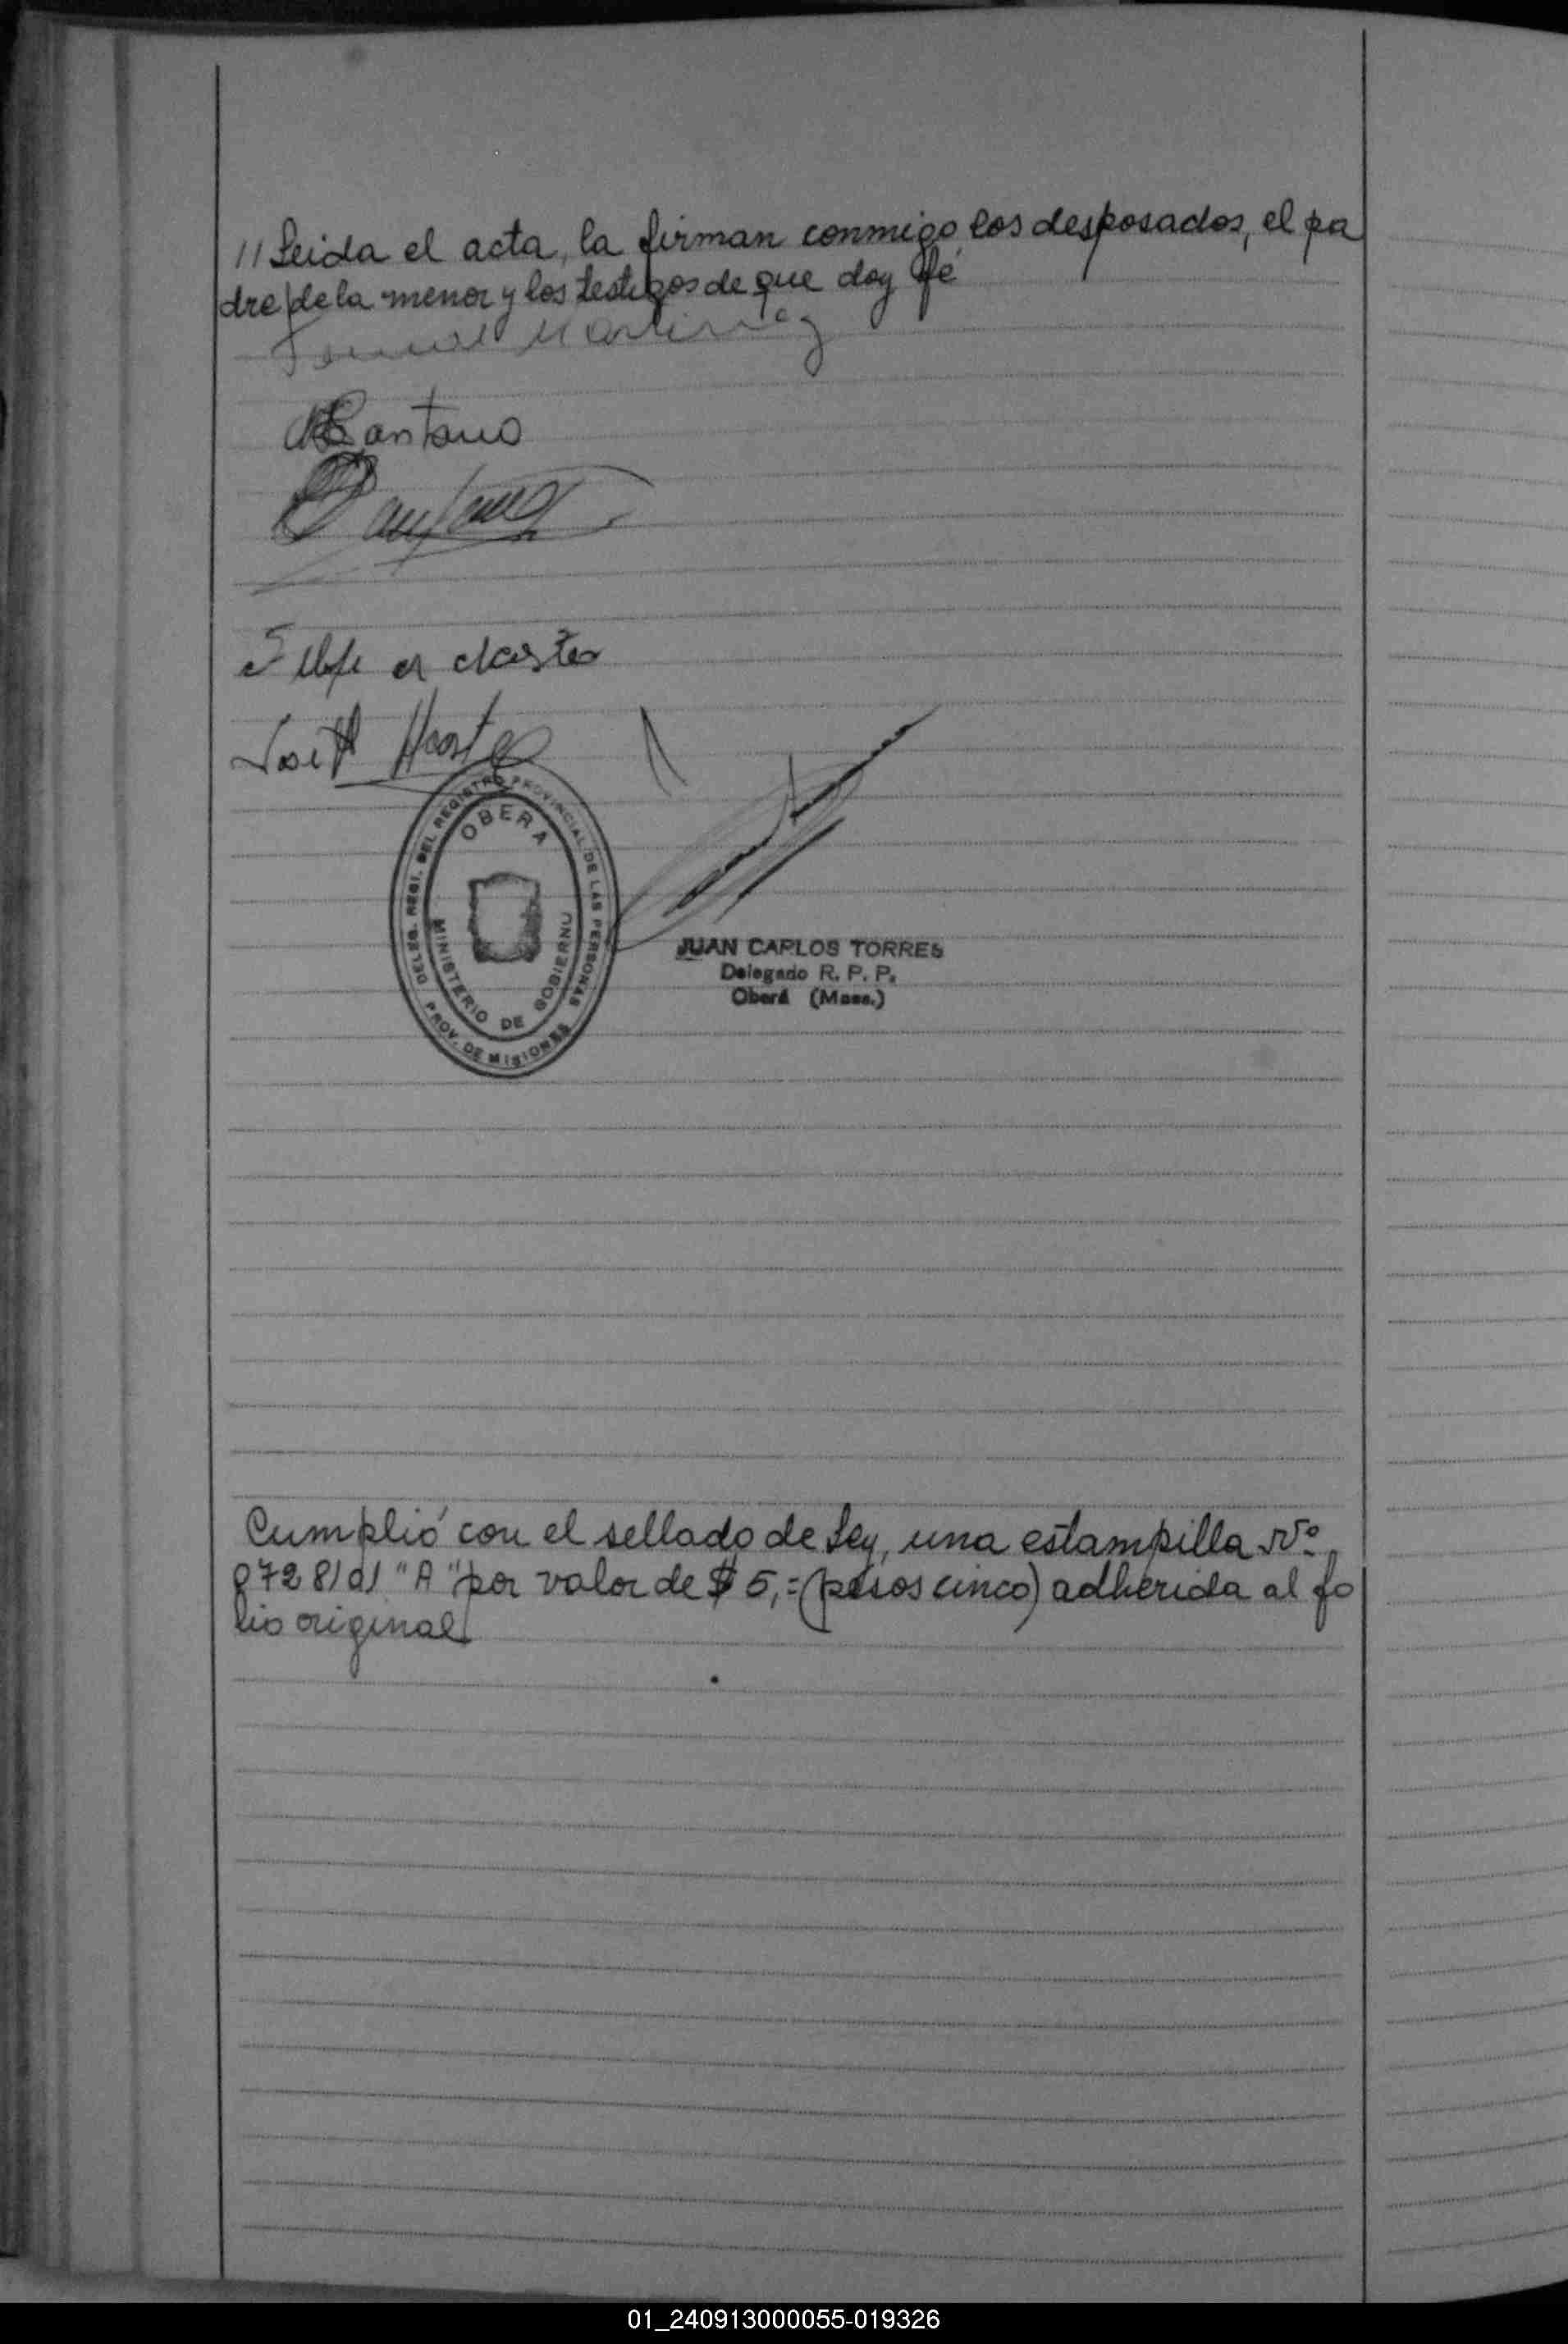 // Leida el acta, la firman conmigo los desposados, el pa
dre de la menor y los testigos de que doy fé
Martinez
Santana
José A Acosta
DELEG. REGI. DEL REGISTRO PROVINCIAL DE LAS PERSONAS
OBERA
MINISTERIO DE GOBIERNO
PROV. DE MISIONES
JUAN CARLOS TORRES
Delegado R. P. P.
Oberá (Mnes.)
Cumplió con el sellado de Ley, una estampilla Nº
0728101 "A" por valor de $ 5,= (pesos cinco) adherida al fo
lio original
01_240913000055-019326